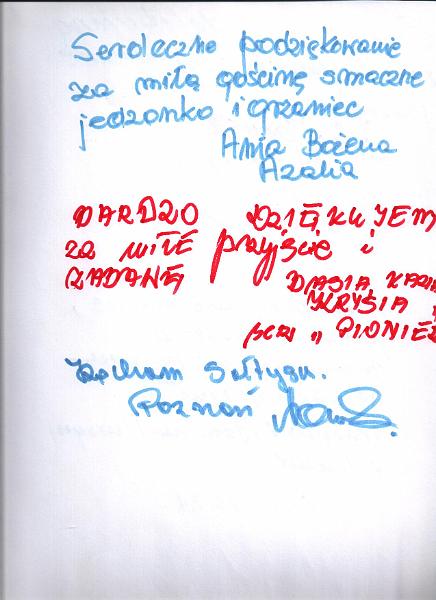 Serdeczne podziękowanie
za miłą gościnę smaczne
jedzonko i grzaniec
Ania Bożena
Azalia
BARDZO DZIĘKUJEM
za miłe przyjście i
ZADANĘ BASIA, KARI
KRYSIA,
"PIONIE
Kocham Sołtysa.
Poznań